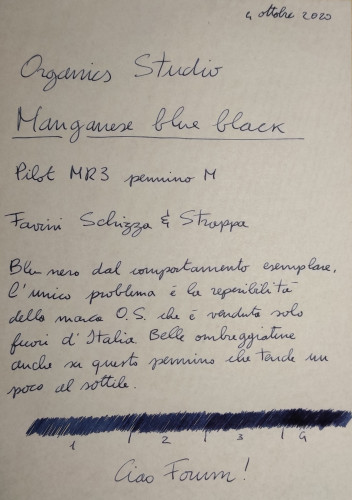 4 ottobre 2020
Organics Studio
Manganese blue black
Pilot MR3 pennino M
Favini Schizza & Strappa
Blu nero dal comportamento esemplare.
L'unico problema è la reperibilità
della marca O.S. che è venduta solo
fuori d'Italia. Belle ombreggiature
anche su questo pennino che tende un
poco al sottile.
1 2 3 4
Ciao Forum!